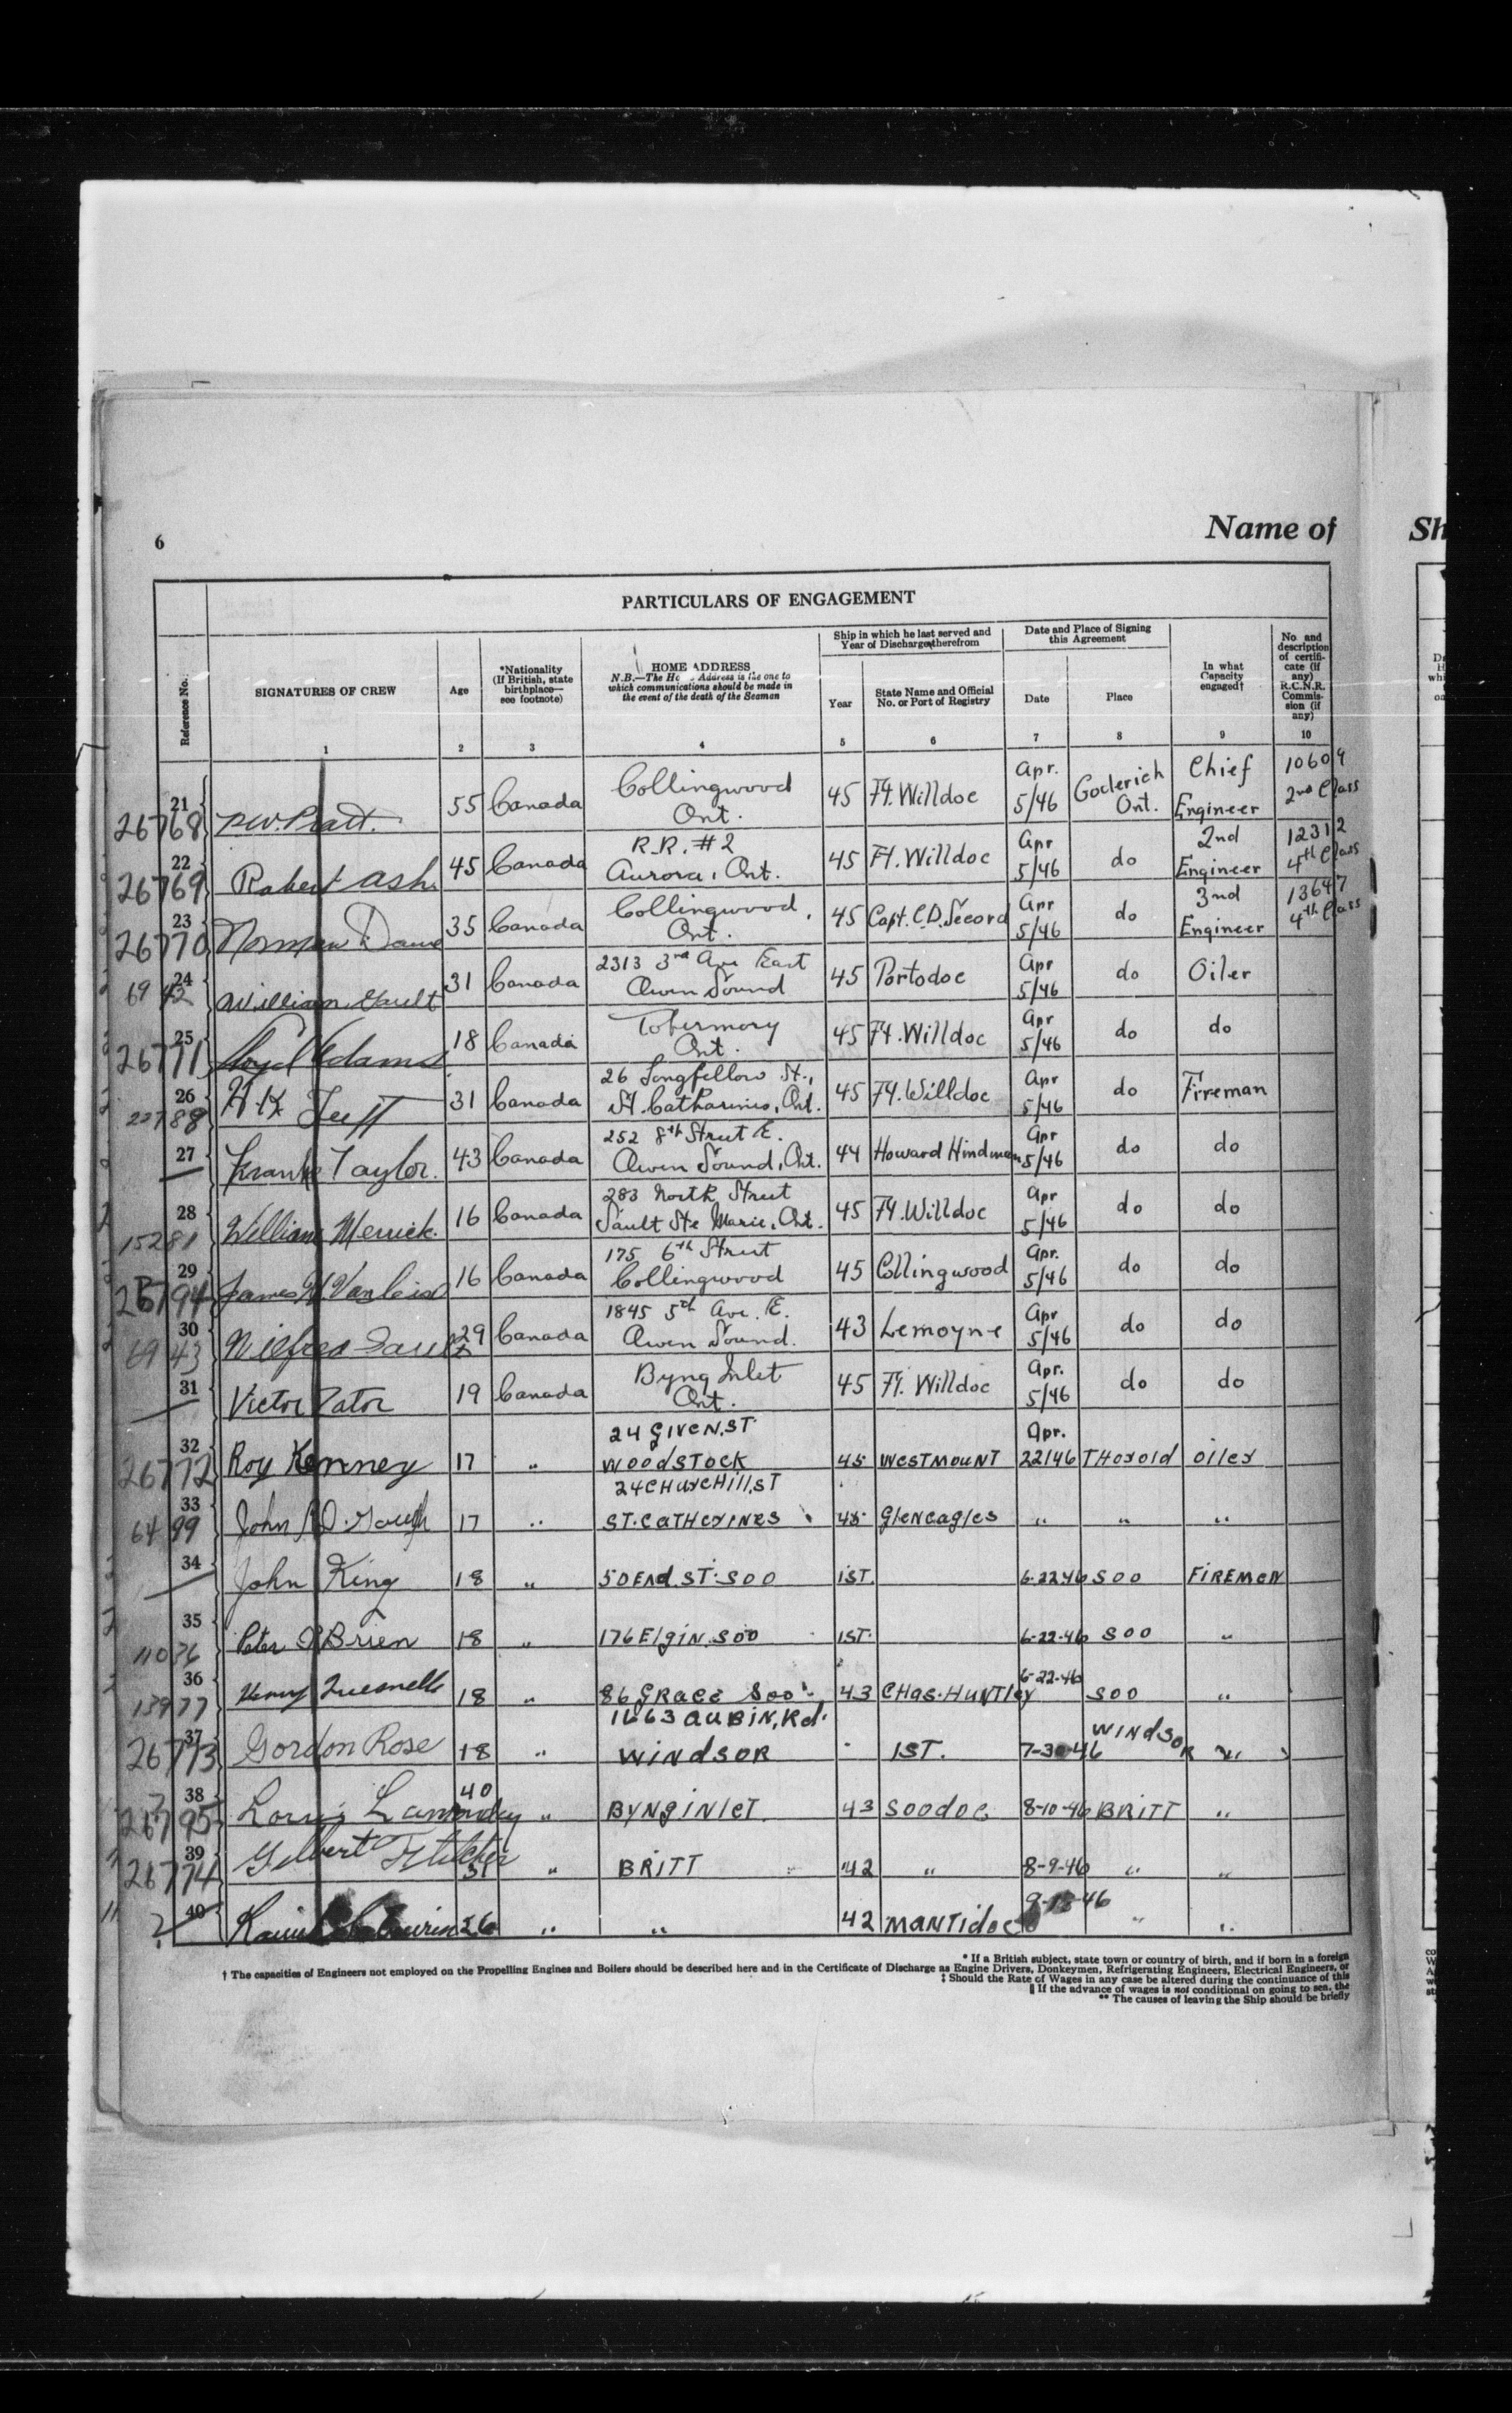 6
Name of
Sh
PARTICULARS OF ENGAGEMENT
Reference No.
SIGNATURES OF CREW
Age
*Nationality
(If British, state
birthplace—
see footnote)
HOME ADDRESS
N.B.—The Ho Address is the one to
which communications should be made in
the event of the death of the Seaman
Ship in which he last served and
Year of Discharge therefrom
Year
State Name and Official
No. or Port of Registry
Date and Place of Signing
this Agreement
Date
Place
In what
Capacity
engaged†
No. and
description
of certifi-
cate (if
any)
R.C.N.R.
Commis-
sion (if
any)
1 2 3 4 5 6 7 8 9 10
Collingwood Apr. Chief 10609
21 26768 Pratt. 55 Canada Ont. 45 Ft. Willdoc 5/46 Goderich Ont. Engineer 2nd Class
R.R. #2 Apr 2nd 12312
22 26769 Robert Ash 45 Canada Aurora, Ont. 45 Ft. Willdoc 5/46 do Engineer 4th Class
Collingwood, Apr 3nd 13647
23 26770 Norman 35 Canada Ont. 45 Capt. C.D. Secord 5/46 do Engineer 4th Class
2313 3rd Ave East Apr
24 6942 William Gault 31 Canada Owen Sound 45 Portodoc 5/46 do Oiler
Tobermory Apr
25 26771 Lloyd Adams 18 Canada Ont. 45 Ft. Willdoc 5/46 do do
26 Longfellow St., Apr
26 22788 31 Canada St. Catharines, Ont. 45 Ft. Willdoc 5/46 do Fireman
252 8th Street E. Apr
27 Frank Taylor. 43 Canada Owen Sound, Ont. 44 Howard Hindman 5/46 do do
283 North Street Apr
28 15281 William Merrick. 16 Canada Sault Ste Marie, Ont. 45 Ft. Willdoc 5/46 do do
175 6th Street Apr.
29 26794 James 16 Canada Collingwood 45 Collingwood 5/46 do do
1845 5th Ave. E. Apr
30 6943 Wilfred Gault 29 Canada Owen Sound. 43 Lemoyne 5/46 do do
Byng Inlet Apr.
31 Victor Tator 19 Canada Ont. 45 Ft. Willdoc 5/46 do do
24 GIVEN.ST Apr.
32 26772 Roy Kenney 17 " WOODSTOCK 45 WESTMOUNT 22/46 THorold oiler
24 CHURCHILL.ST
33 6499 John D. Gough 17 " ST.CATHERINES 45 Gleneagles " " "
34 John King 18 " 50 End.ST.SOO 1ST. 6-22-46 SOO FIREMEN
35 11036 Peter O'Brien 18 " 176 Elgin. SOO 1ST. 6-22-46 SOO "
36 13977 Henry Quesnelle 18 " 86 GRACE SOO 43 CHas. HUNTley 6-22-46 SOO "
1663 AUBIN, Rd. WINDSOR
37 26773 Gordon Rose 18 " WINDSOR 1ST. 7-30-46 "
38 26795 Louis 40 " BYNG INLET 43 SOODOC 8-10-46 BRITT "
39 26774 Gilbert 31 " BRITT 42 " 8-9-46 " "
40 ? 26 " " 42 MANTIdoc 46 " "
* If a British subject, state town or country of birth, and if born in a foreign
† The capacities of Engineers not employed on the Propelling Engines and Boilers should be described here and in the Certificate of Discharge as Engine Drivers, Donkeymen, Refrigerating Engineers, Electrical Engineers, or
‡ Should the Rate of Wages in any case be altered during the continuance of this
‖ If the advance of wages is not conditional on going to sea, the
** The causes of leaving the Ship should be briefly